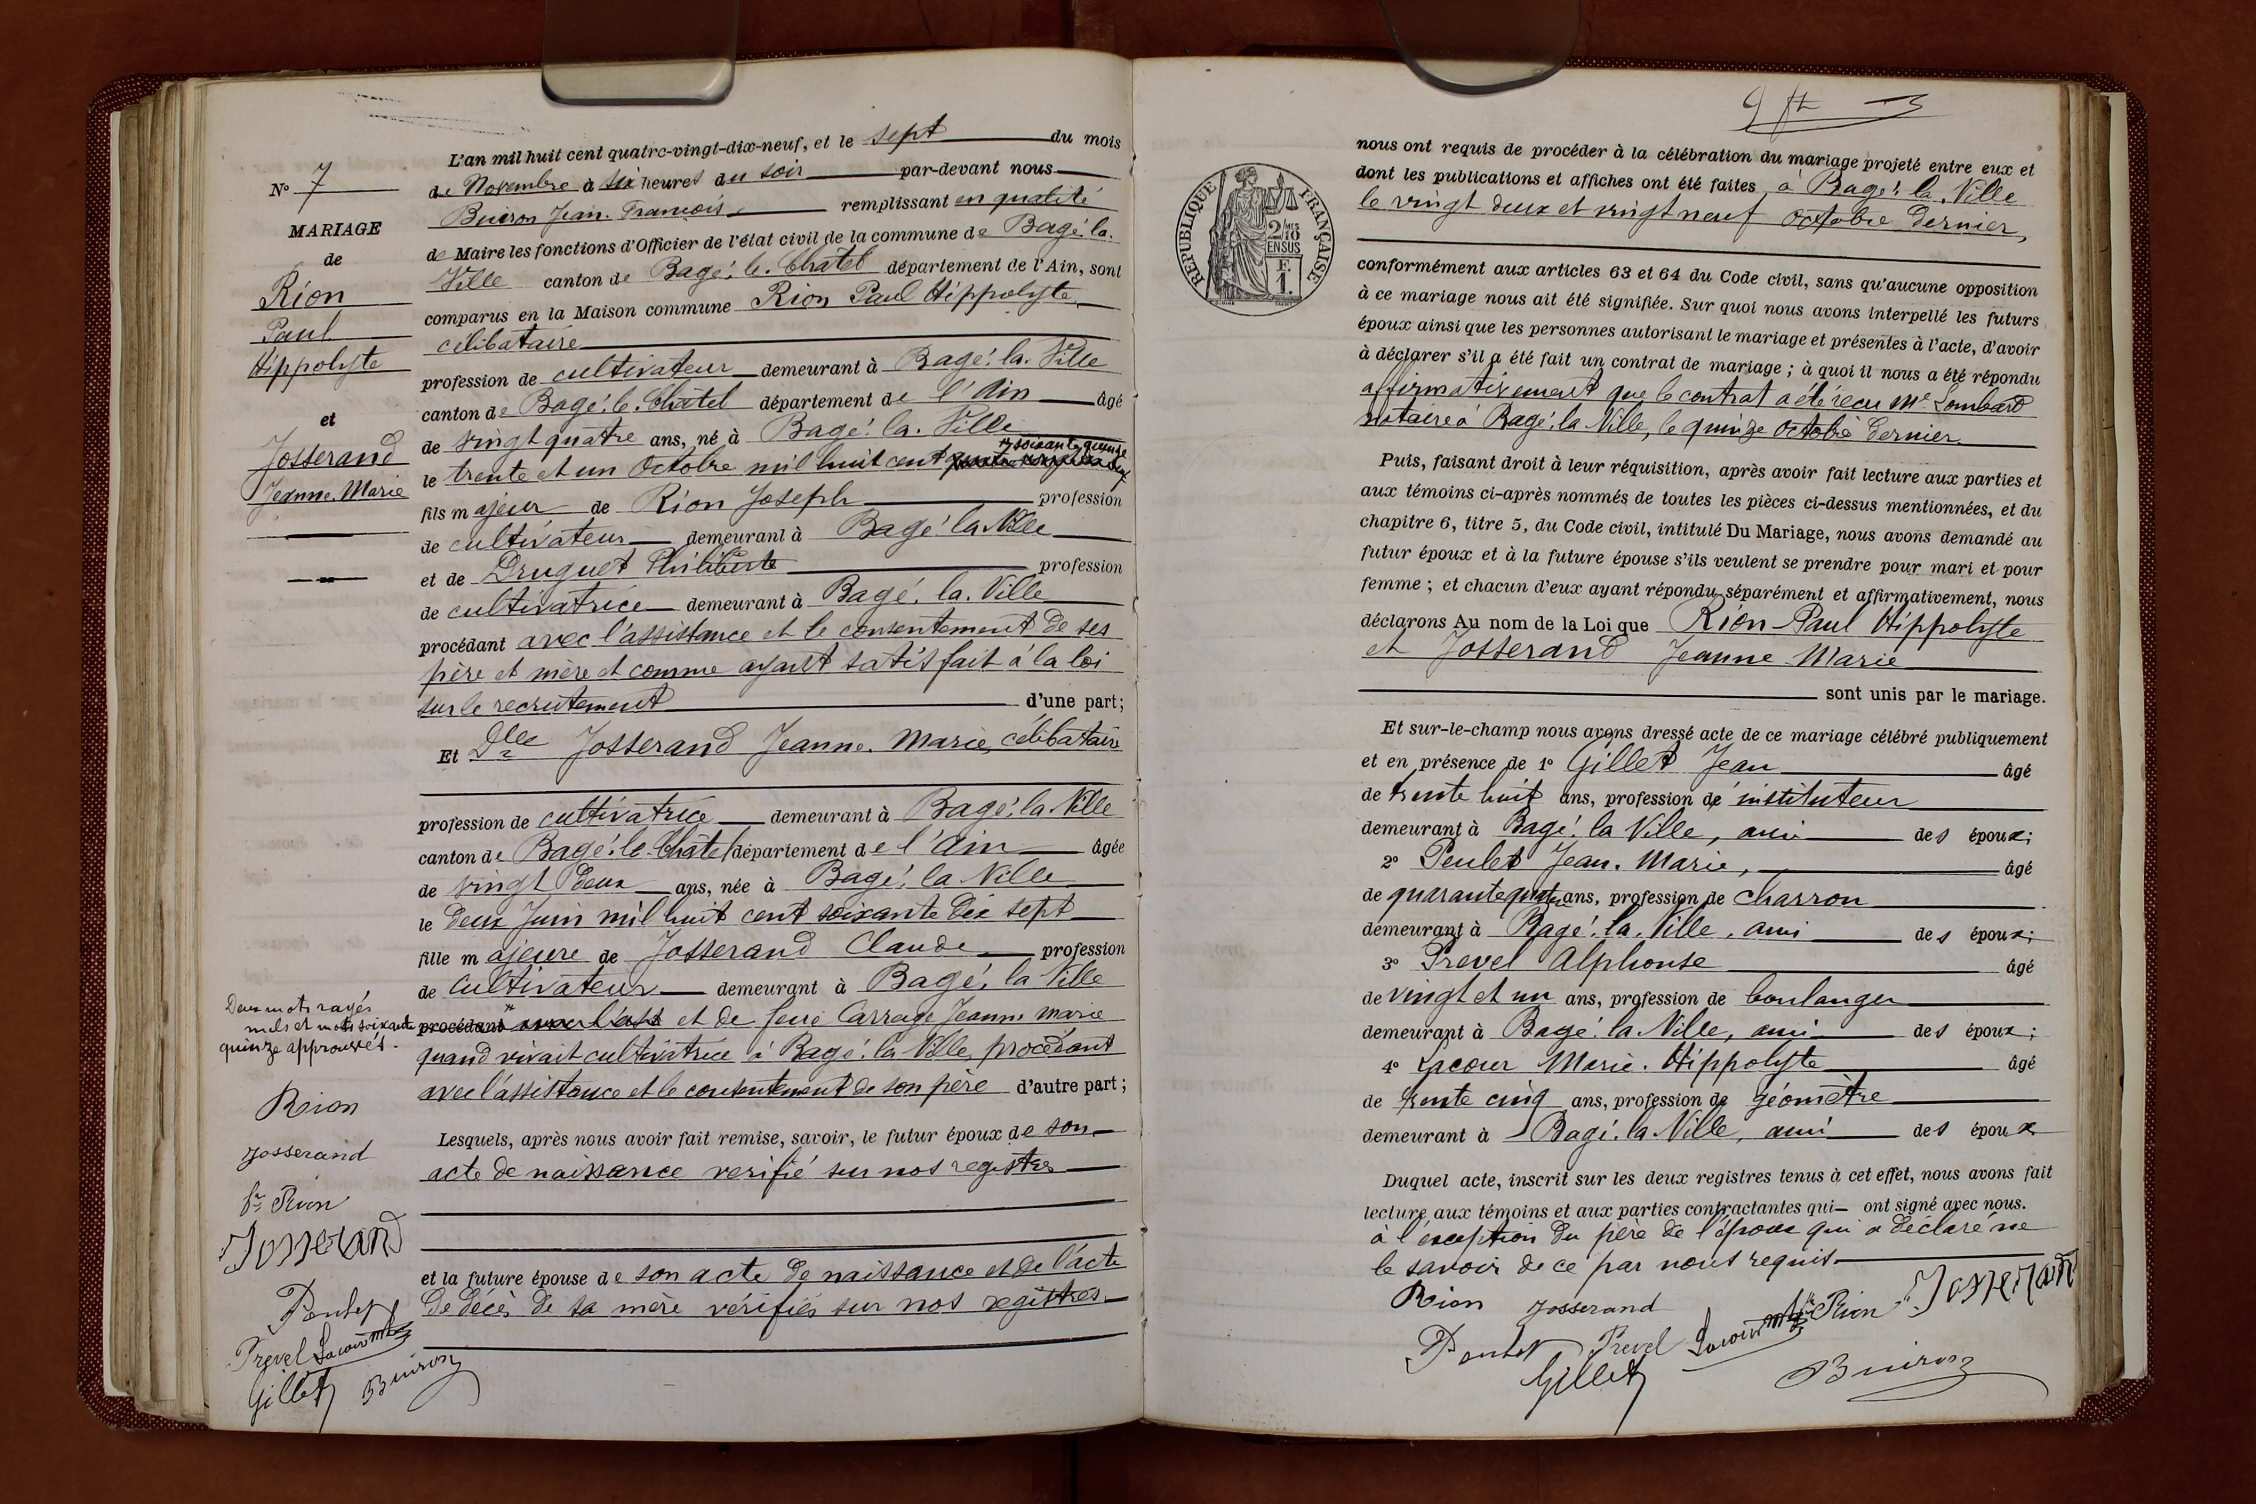 N° 7
MARIAGE
de
Rion
Paul
Hippolyte
et
Josserand
Jeanne Marie
L'an mil huit cent quatre-vingt-dix-neuf, et le sept du mois
de Novembre à six heures du soir par-devant nous
Buiron Jean-François remplissant en qualité
de Maire les fonctions d'Officier de l'état civil de la commune de Bagé-la-
Ville canton de Bagé-le-Châtel département de l'Ain, sont
comparus en la Maison commune Rion Paul Hippolyte,
célibataire
profession de cultivateur demeurant à Bagé-la-Ville
canton de Bagé-le-Châtel département de l'Ain âgé
de vingt quatre ans, né à Bagé-la-Ville
soixante quinze
le trente et un Octobre mil huit cent
fils majeur de Rion Joseph profession
de cultivateur demeurant à Bagé la Ville
et de Druguet Philiberte profession
de cultivatrice demeurant à Bagé-la-Ville
procédant avec l'assistance et le consentement de ses
père et mère et comme ayant satisfait à la loi
sur le recrutement d'une part;
Et Dlle Josserand Jeanne-Marie, célibataire
profession de cultivatrice demeurant à Bagé-la-Ville
canton de Bagé-le-Châtel département de l'Ain âgée
de vingt deux ans, née à Bagé-la Ville
le deux Juin mil huit cent soixante dix sept
fille majeure de Josserand Claude profession
de cultivateur demeurant à Bagé-la Ville
procédant avec l'ast et de feue Carrage Jeanne Marie
quand vivait cultivatrice à Bagé-la Ville, procédant
avec l'assistance et le consentement de son père d'autre part;
Lesquels, après nous avoir fait remise, savoir, le futur époux de son
acte de naissance verifié sur nos registres
et la future épouse de son acte de naissance et de l'acte
de décès de sa mère vérifiés sur nos registres
Deux mots rayés
nuls et mots soixante
quinze approuvés.
Rion
Josserand
Rion
Josserand
Penlet
Prevel Lacour
Gillet Buiron
RÉPUBLIQUE FRANÇAISE
2/10 EN SUS
F.
1.
nous ont requis de procéder à la célébration du mariage projeté entre eux et
dont les publications et affiches ont été faites à Bagé-la-Ville
le vingt deux et vingt neuf octobre dernier,
conformément aux articles 63 et 64 du Code civil, sans qu'aucune opposition
à ce mariage nous ait été signifiée. Sur quoi nous avons interpellé les futurs
époux ainsi que les personnes autorisant le mariage et présentes à l'acte, d'avoir
à déclarer s'il a été fait un contrat de mariage ; à quoi il nous a été répondu
affirmativement que le contrat a été reçu Me Lombard
notaire à Bagé-la Ville, le quinze Octobre dernier
Puis, faisant droit à leur réquisition, après avoir fait lecture aux parties et
aux témoins ci-après nommés de toutes les pièces ci-dessus mentionnées, et du
chapitre 6, titre 5, du Code civil, intitulé Du Mariage, nous avons demandé au
futur époux et à la future épouse s'ils veulent se prendre pour mari et pour
femme ; et chacun d'eux ayant répondu séparément et affirmativement, nous
déclarons Au nom de la Loi que Rion Paul Hippolyte
et Josserand Jeanne Marie
sont unis par le mariage.
Et sur-le-champ nous avons dressé acte de ce mariage célébré publiquement
et en présence de 1° Gillet Jean âgé
de trente huit ans, profession de instituteur
demeurant à Bagé-la Ville, ami des époux;
2° Penlet Jean-Marie, âgé
de quarante quatre ans, profession de charron
demeurant à Bagé-la-Ville, ami des époux;
3° Prevel Alphonse âgé
de vingt et un ans, profession de boulanger
demeurant à Bagé-la-Ville, ami des époux;
4° Lacour Marie-Hippolyte âgé
de trente cinq ans, profession de géomètre
demeurant à Bagé-la Ville, ami des époux
Duquel acte, inscrit sur les deux registres tenus à cet effet, nous avons fait
lecture aux témoins et aux parties contractantes qui ont signé avec nous.
à l'exception du père de l'époux qui a déclaré ne
le savoir de ce par nous requis
Rion Josserand Rion Josserand
Penlet Prevel Lacour
Gillet Buiron